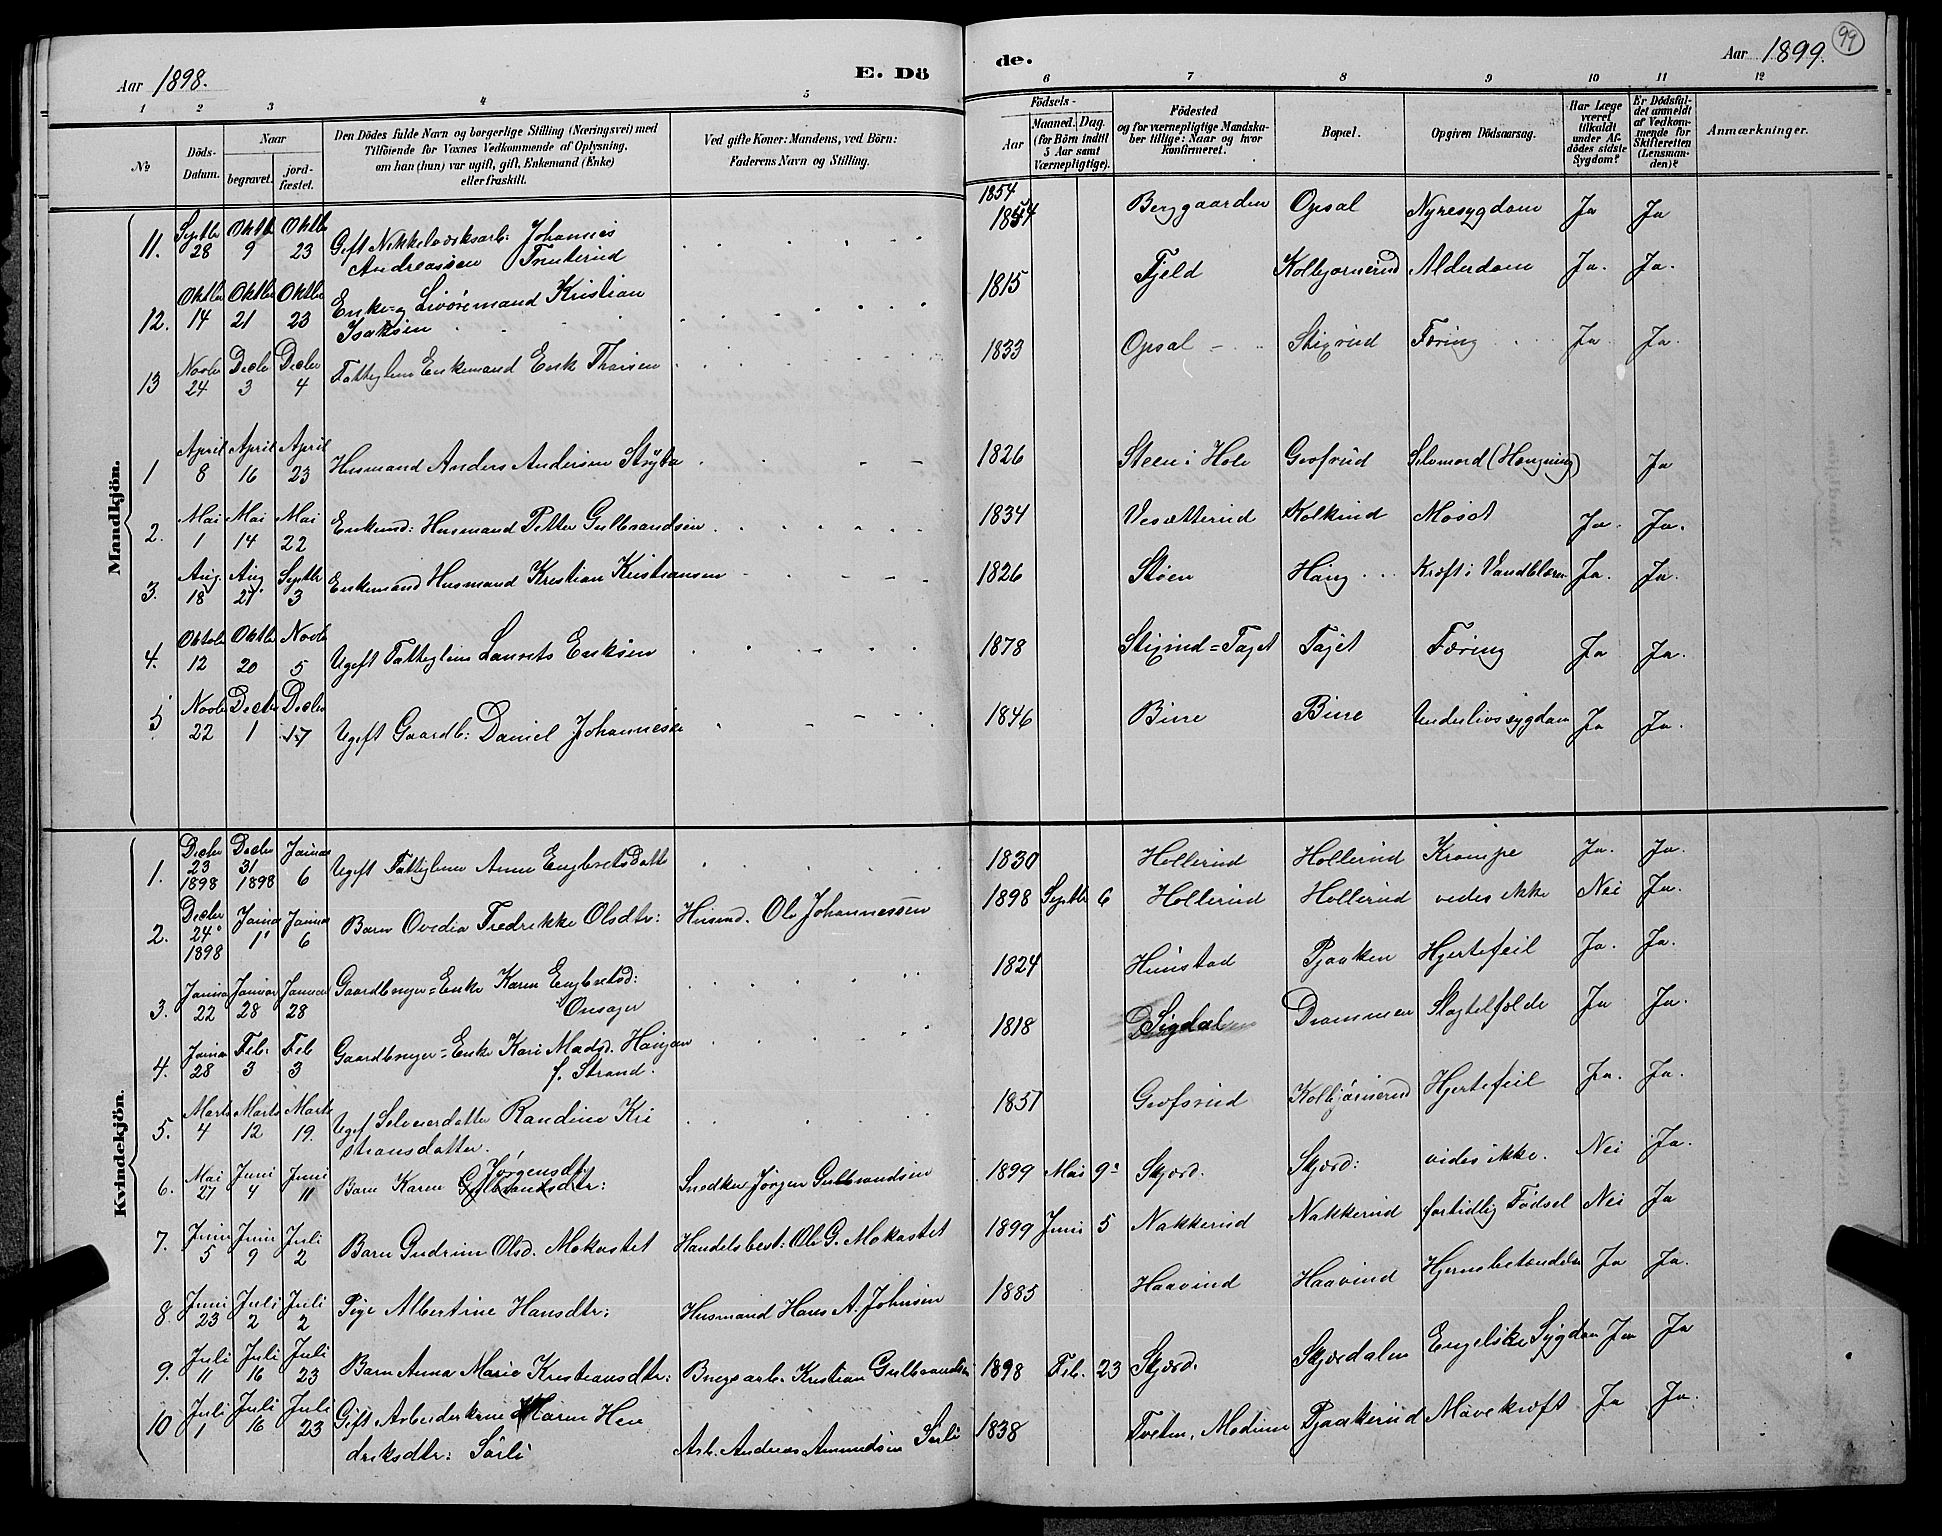 Aar 1898.
E. Döde.
Aar 1899.
99
1 2 3 4 5 6 7 8 9 10 11 12
No
Döds-Datum.
Naar
begravet.
jord-fæstet.
Den Dödes fulde Navn og borgerlige Stilling (Næringsvei) med
Tilföiende for Voxnes Vedkommende af Oplysning,
om han (hun) var ugift, gift, Enkemand (Enke)
eller fraskilt.
Ved gifte Koner: Mandens, ved Börn:
Faderens Navn og Stilling.
Födsels-
Aar
Maaned. Dag.
(for Börn indtil
5 Aar samt
Værnepligtige).
Födested
og for værnepligtige Mandska-
ber tillige: Naar og hvor
konfirmeret.
Bopæl.
Opgiven Dödsaarsag.
Har Læge
været
tilkaldt
under Af-
dödes sidste
Sygdom?
Er Dödsfal-
det anmeldt
af Vedkom-
mende for
Skifteretten
(Lensman-
den)?
Anmærkninger.
Mandkjön.
11. Septbr 28 Oktbr 9 Oktbr 23 Gift Nikkelværksarb: Johannes
Andreassen 1854 1854 Berggaarden Opsal Nyresygdom Ja Ja
12. Oktbr 14 Oktbr 21 Oktbr 23 Enke- og Livöremand Kristian
Isaksen 1815 Fjeld Kolbjørnerud Alderdom Ja. Ja.
13 Novbr 24 Decbr 3 Decbr 4 Fattiglem Enkemand Erik Thorsen 1833 Opsal Stixrud Tæring Ja. Ja.
1 April 8 April 16 April 23 Husmand Anders Andersen 1826 Steen i Hole Selvmord (Hængning) Ja
2. Mai 1 Mai 14 Mai 22 Enkemd: Husmand Petter Gulbrandsen 1834 Ja. Ja.
3. Aug. 18 Aug 27 Septbr 3 Enkemand Husmand Kristian Kristiansen 1826 Støen Kræft i Vandblæren Ja. Ja.
4. Oktobr 12 Oktbr 20 Novbr 5 Ugift Fattiglem Laurits Eriksen 1878 Stixrud=Taget Taget Tæring Ja Ja.
5 Novbr 22 Decbr 1 Decbr 17 Ugift Gaardb: Daniel Johannesen 1846 Bure Bure Underlivssygdom Ja Ja.
Kvindekjön.
1. Decbr 23 1898 Decbr 31 1898 Januar 6 Ugift Fattiglem Anne Engbretsdatter 1830 Hollerud Hollerud Krampe Ja. Ja.
2. Decbr 24 1898 Januar 1 Januar 6 Barn Ovedia Fredrikke Olsdtr: Husmd. Ole Johannessen 1898 Septbr 6 Hollerud Hollerud vides ikke Nei Ja.
3. Januar 22 Januar 28 Januar 28 Gaardbruger=Enke Karen Engbretsd:
Onsager 1824 Hunstad Pjaaken Hjertefeil Ja. Ja.
4. Januar 28 Feb. 3 Feb 3 Gaardbruger=Enke Kari Madsd. Haugan
f. Strand. 1818 Sigdal Drammen Slagtilfælde Ja Ja.
5. Marts 4 Marts 12 Marts 19. Ugift Selveierdatter Randine Kri
stiansdatter. 1851 Kolbjørnerud Hjertefeil Ja. Ja.
6. Mai 27 Juni 4 Juni 11 Barn Karen Gulbrandsdtr: Jörgensdtr Snedker Jörgen Gulbrandsen 1899 Mai 9 Skjærd. Skjærd: vides ikke. Nei Ja.
7. Juni 5 Juni 9 Juli 2 Barn Gudrun Olsd. Mokastet Handelsbest: Ole G. Mokastet 1899 Juni 5 Nakkerud Nakkerud fortidlig Födsel Nei Ja
8. Juni 23 Juli 2 Juli 2 Pige Albertine Hansdtr: Husmand Hans A. Johnsen 1885 Haavind Haavind Hjernebetændelse Ja Ja.
9. Juli 11 Juli 16 Juli 23 Barn Anna Marie Kristiansdtr: Brugsarb. Kristian Gulbrandsen 1898 Feb. 23 Skjærd. Skjærdalen Engelske Sygdom Ja Ja
10 Juli 1 Juli 16 Juli 23 Gift Arbeiderkone Maren Hen
driksdtr: Sörli Arb. Andreas Amundsen Sörli 1838 Tveten, Modum Pjaakerud Mavekræft Ja Ja.